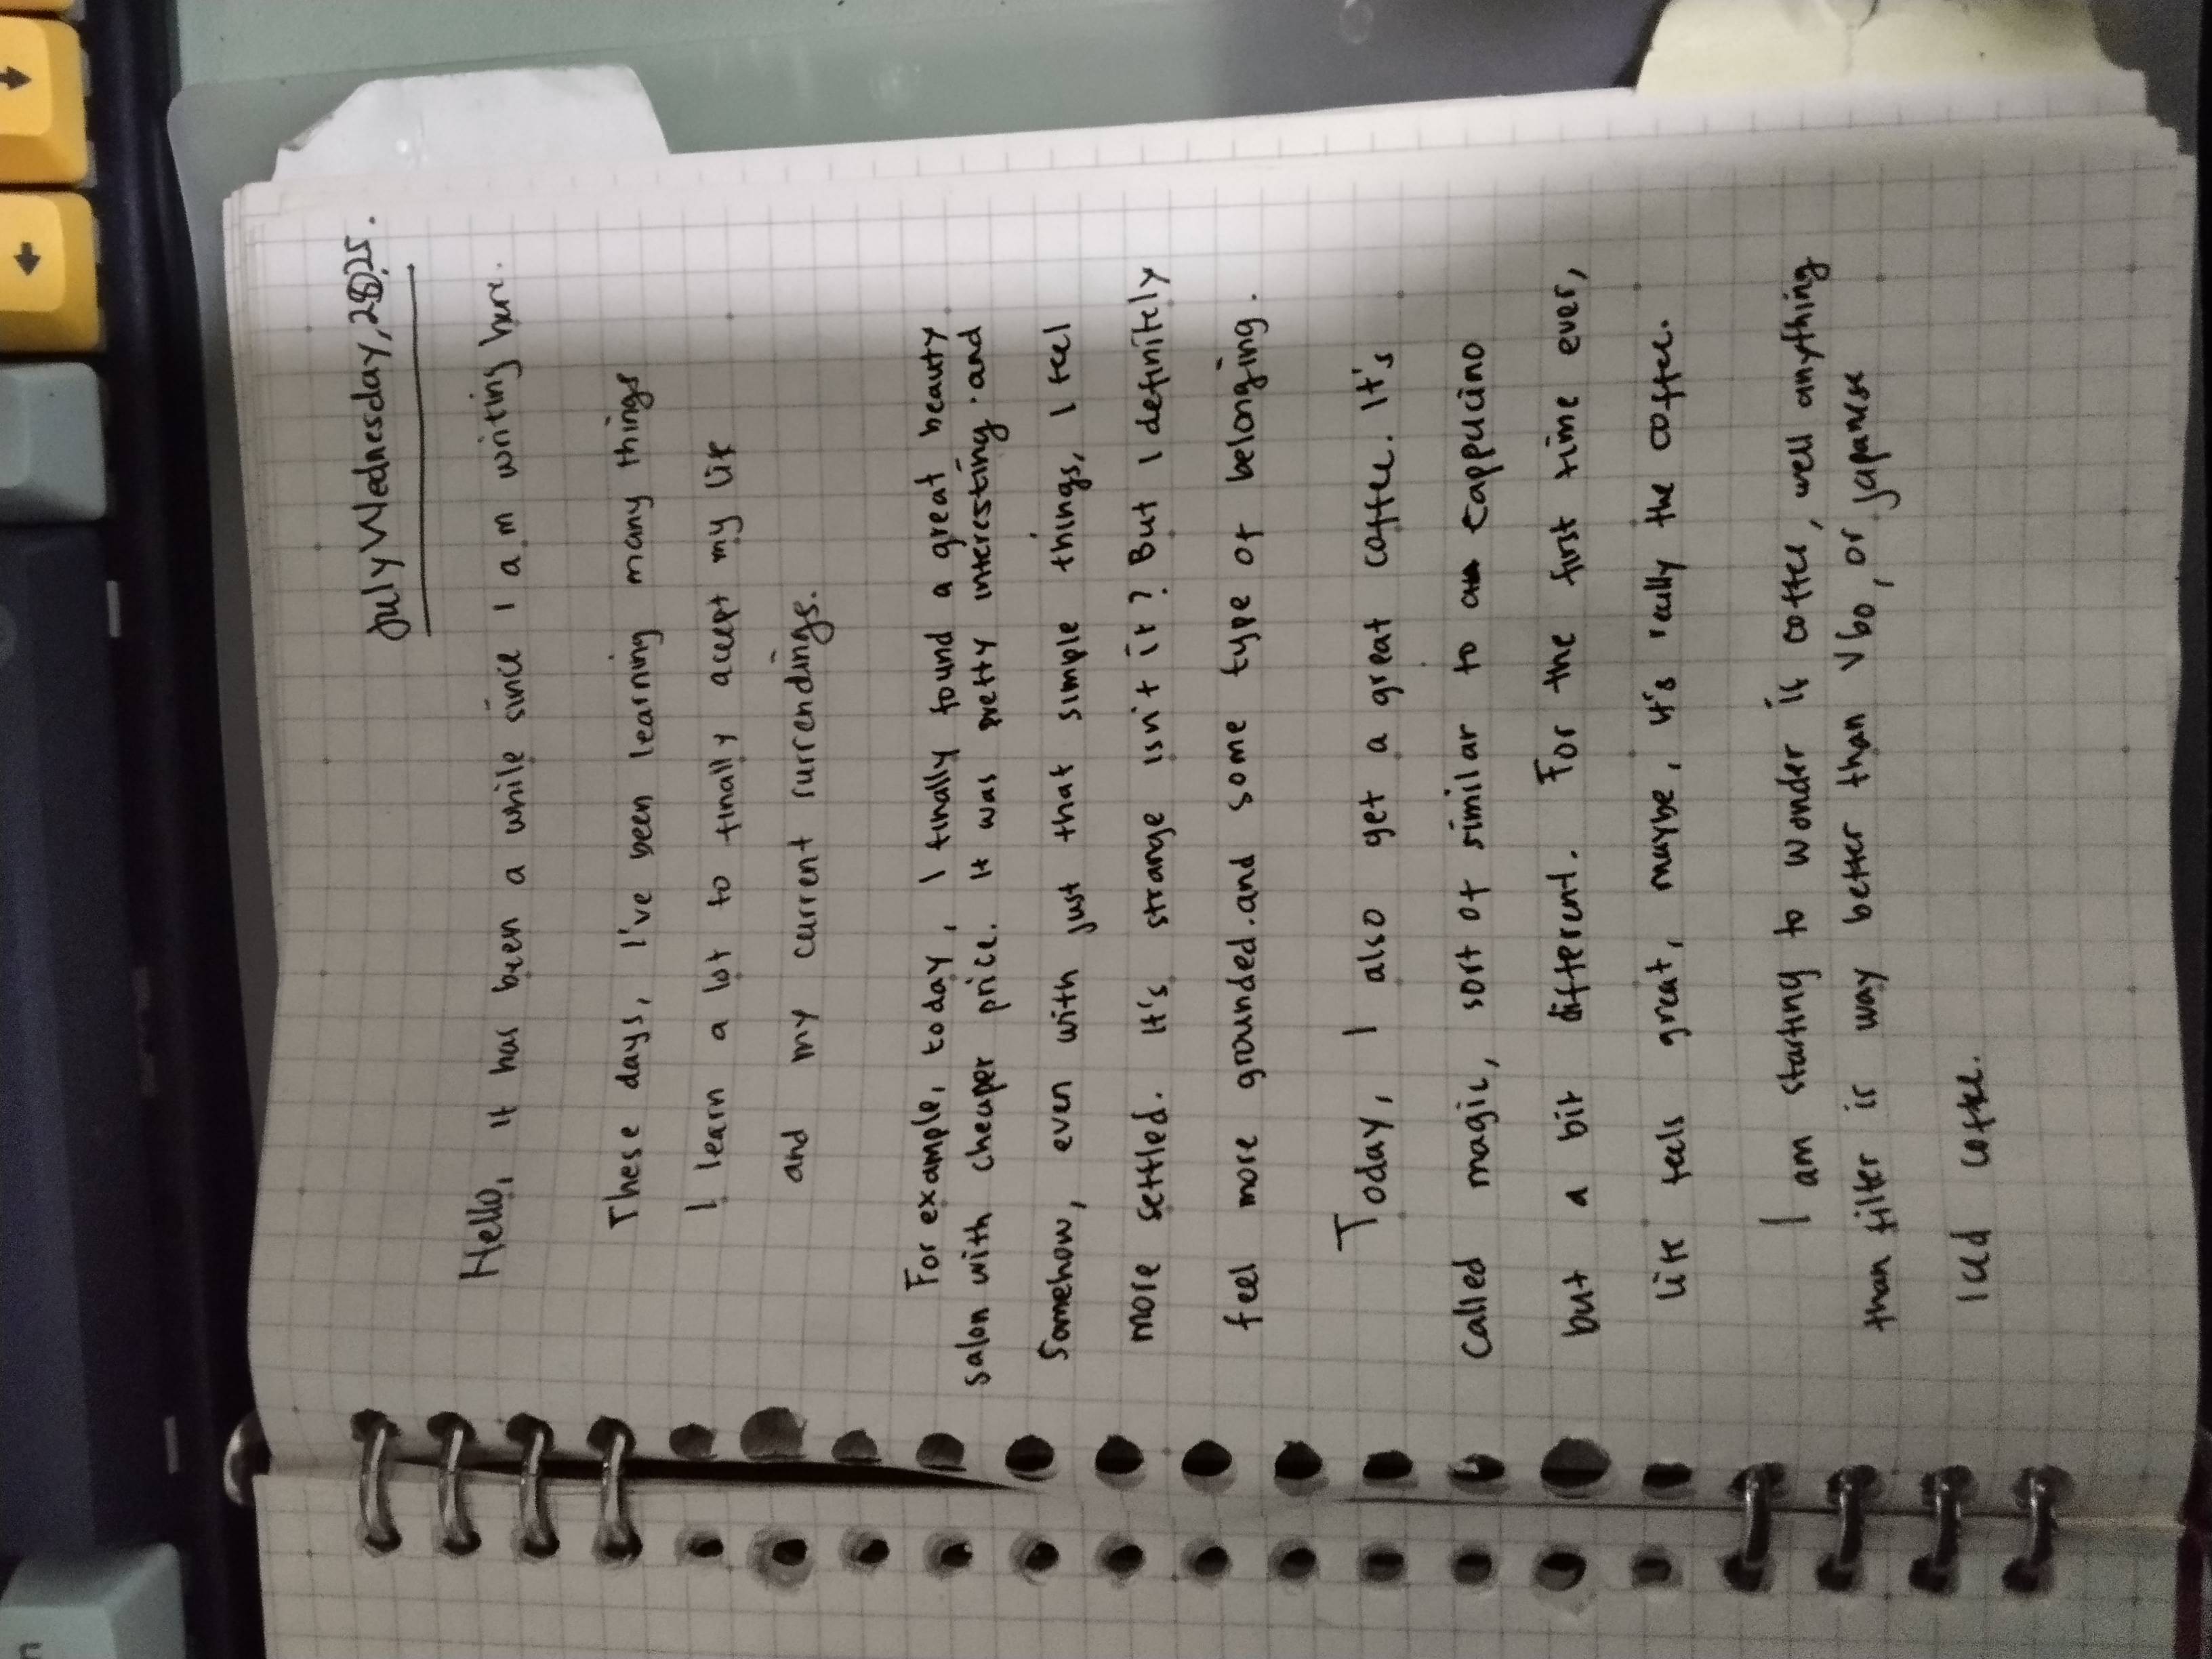 July Wednesday, 2025.
Hello, it has been a while since I am writing here.
These days, I've been learning many things
I learn a lot to finally accept my life
and my current surrendings.
For example, today, I finally found a great beauty
salon with cheaper price. It was pretty interesting. and
Somehow, even with just that simple things, I feel
more settled. It's strange isn't it? But I definitely
feel more grounded. and some type of belonging.
Today, I also get a great coffee. It's
called magic, sort of similar to cappucino
but a bit different. For the first time ever,
life feels great, maybe, it's really the coffee.
I am starting to wonder if coffee, well anything
than filter is way better than V60, or japanese
Iced coffee.